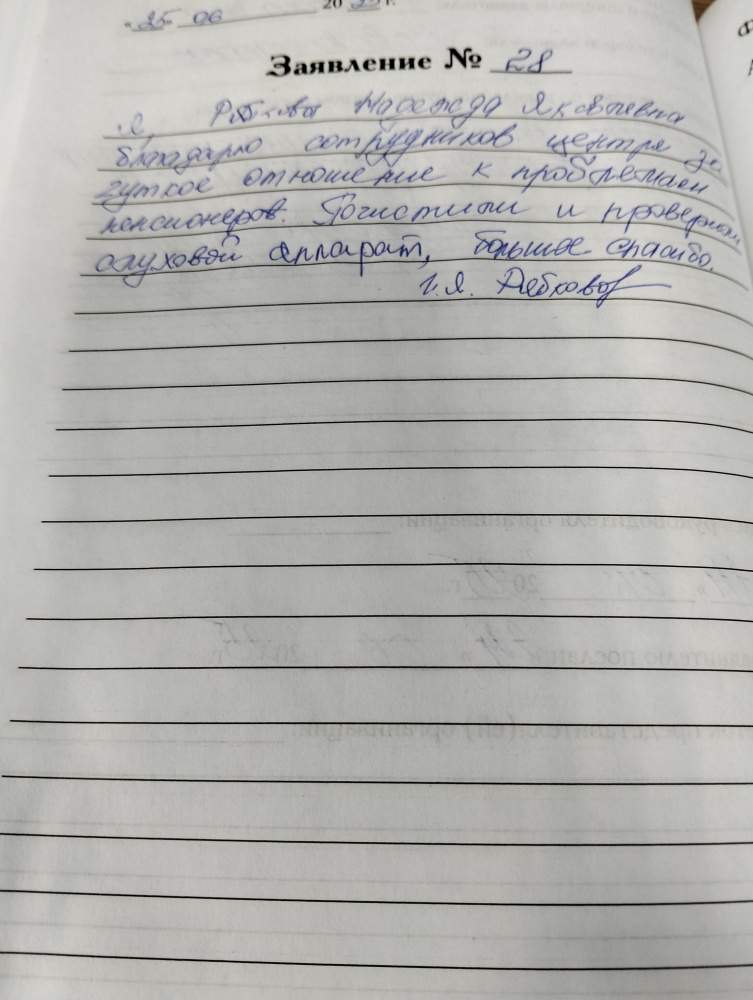 «25» 06 20 25 г.
Заявление № 28
Я, Рябкова Надежда Яковлевна
благадарю сотрудников центра за
чуткое отношение к проблемам
пенсионеров. Почистили и проверили
слуховой аппарат, большое спасибо.
Н.Я. Рябкова